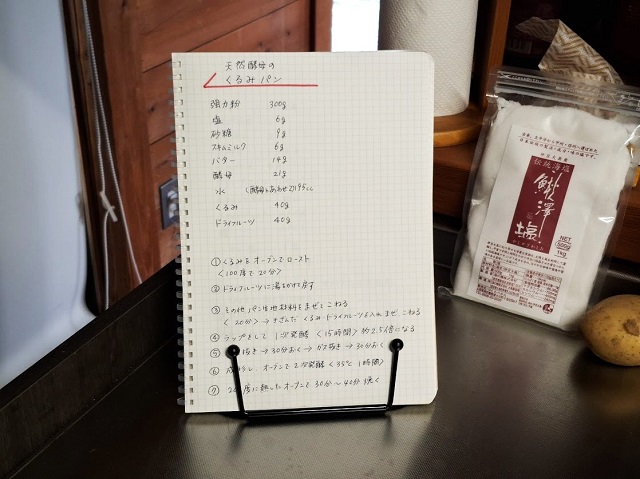 天然酵母の
くるみパン
強力粉 300g
塩 6g
砂糖 9g
スキムミルク 6g
バター 14g
酵母 21g
水 (酵母とあわせ)195cc
くるみ 40g
ドライフルーツ 40g
① くるみを オーブンで ロースト
<100度で20分>
② ドライフルーツに湯をかけて戻す
③ その他 パン生地材料をまぜ、こねる
<20分> → くるみ・ドライフルーツを入れ まぜ、こねる
④ ラップをして 1次発酵 <15時間> 約2.5倍になる
⑤ 抜き → 30分おく → ガス抜き → 30分おく
⑥ オーブンで2次発酵 <35℃ 1時間>
⑦ 度に熱したオーブンで 30分~40分 焼く
伝統海塩
鰯澤
塩
NET
500g
1kg